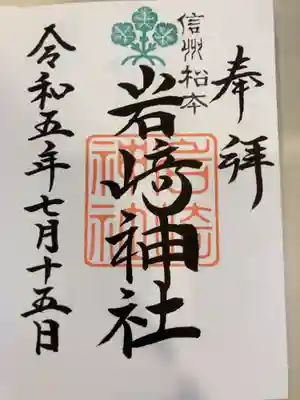 奉拝
信州松本
岩﨑神社
岩崎
神社
令和五年七月十五日